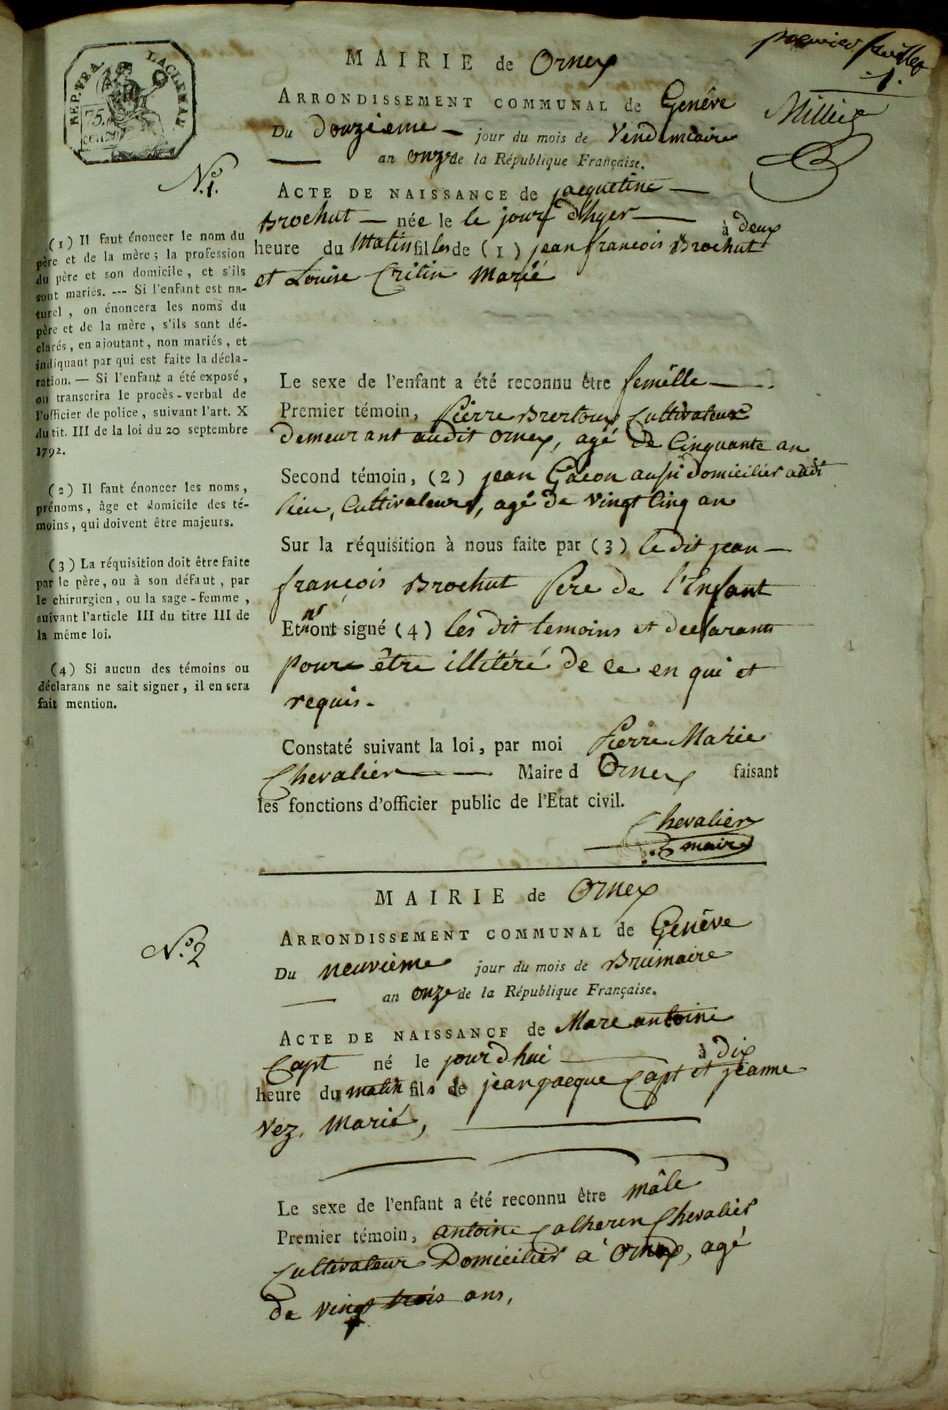 premier feuillet
1.
REP. FRA. LA CI
75.
MAIRIE de Ornex
ARRONDISSEMENT COMMUNAL de Genève
Du Douzieme jour du mois de Vendemiaire
an onze de la République Française.
N.° 1.
ACTE DE NAISSANCE de jacqueline
Brochut née le le jour d'hyer à deux
heure du Matin fille de (1) jean francois Brochut
et Louise Critin Marié
(1) Il faut énoncer le nom du
père et de la mère ; la profession
du père et son domicile, et s'ils
sont mariés. --- Si l'enfant est na-
turel, on énoncera les noms du
père et de la mère, s'ils sont dé-
clarés, en ajoutant, non mariés, et
indiquant par qui est faite la décla-
ration. — Si l'enfant a été exposé,
on transcrira le procès-verbal de
l'officier de police, suivant l'art. X
du tit. III de la loi du 20 septembre
1792.
(2) Il faut énoncer les noms,
prénoms, âge et domicile des té-
moins, qui doivent être majeurs.
(3) La réquisition doit être faite
par le père, ou à son défaut, par
le chirurgien, ou la sage-femme,
suivant l'article III du titre III de
la même loi.
(4) Si aucun des témoins ou
déclarans ne sait signer, il en sera
fait mention.
Le sexe de l'enfant a été reconnu être femelle
Premier témoin, Pierre Cultivateur
Demeurant audit Ornex, agé de Cinquante an
Second témoin, (2) jean aussi Domicilier audit
lieu, Cultivateur, agé de vingt Cinq an
Sur la réquisition à nous faite par (3) le dit jean
françois Brochut Père de l'Enfant
Et n' ont signé (4) les dit temoins et declarant
pour être illitéré de ce en qui et
requis.
Constaté suivant la loi, par moi Pierre Marie
Chevalier Maire d Ornex faisant
les fonctions d'officier public de l'Etat civil.
Chevalier
maire
MAIRIE de Ornex
N.° 2
ARRONDISSEMENT COMMUNAL de Genève
Du neuvième jour du mois de Brumaire
an onze de la République Française.
ACTE DE NAISSANCE de Marc antoine
Capt né le jour d'hui à dix
heure du matin fils de jean jacque Capt et jeanne
Vez, Marié,
Le sexe de l'enfant a été reconnu être mâle
Premier témoin, antoine Chevalier
Cultivateur Domicilier à Ornex, agé
de vingt trois ans,